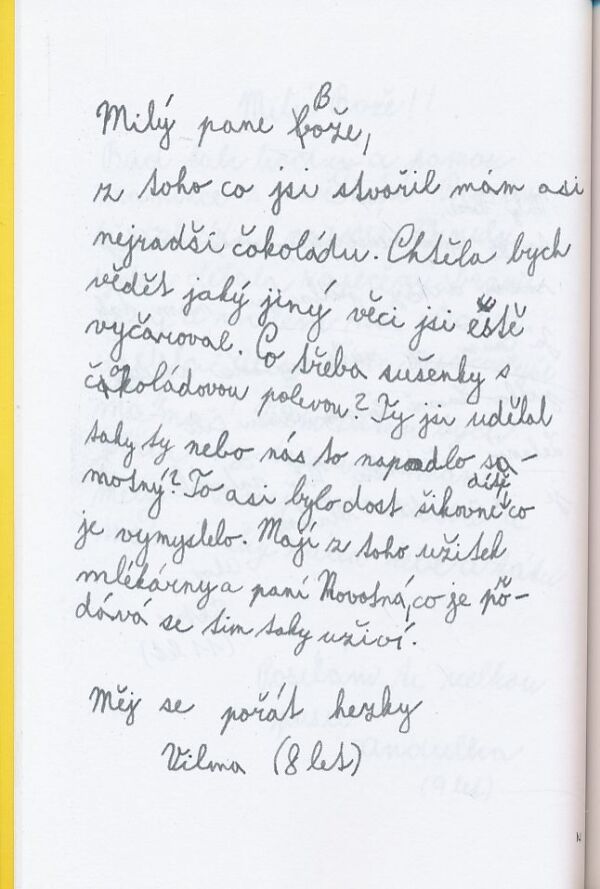 Milý pane Bože,
z toho co jsi stvořil mám asi
nejradši čokoládu. Chtěla bych
vědět jaký jiný věci jsi eště
vyčaroval. Co třeba sušenky s
čokoládovou polevou? Ty jsi udělal
taky ty nebo nás to napadlo sa-
motný? To asi bylo dost šikovné dítě co
je vymyslelo. Mají z toho užitek
mlékárny a paní Novotná, co je pro-
dává se tim taky uživí.
Měj se pořát hezky
Vilma (8 let)